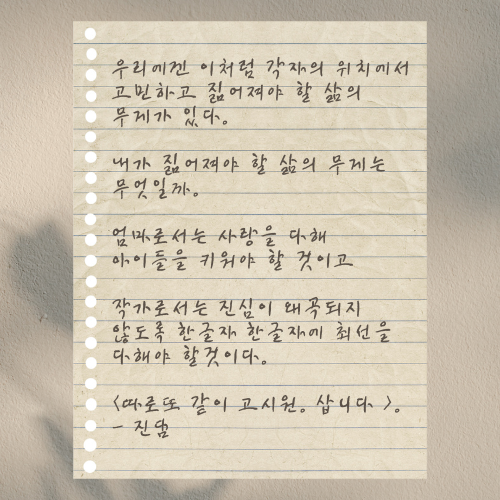 우리에겐 이처럼 각자의 위치에서
고민하고 짊어져야 할 삶의
무게가 있다.
내가 짊어져야 할 삶의 무게는
무엇일까.
엄마로서는 사랑을 다해
아이들을 키워야 할 것이고
작가로서는 진심이 왜곡되지
않도록 한글자 한글자에 최선을
다해야 할것이다.
<따로또 같이 고시원, 삽니다 >.
- 진담